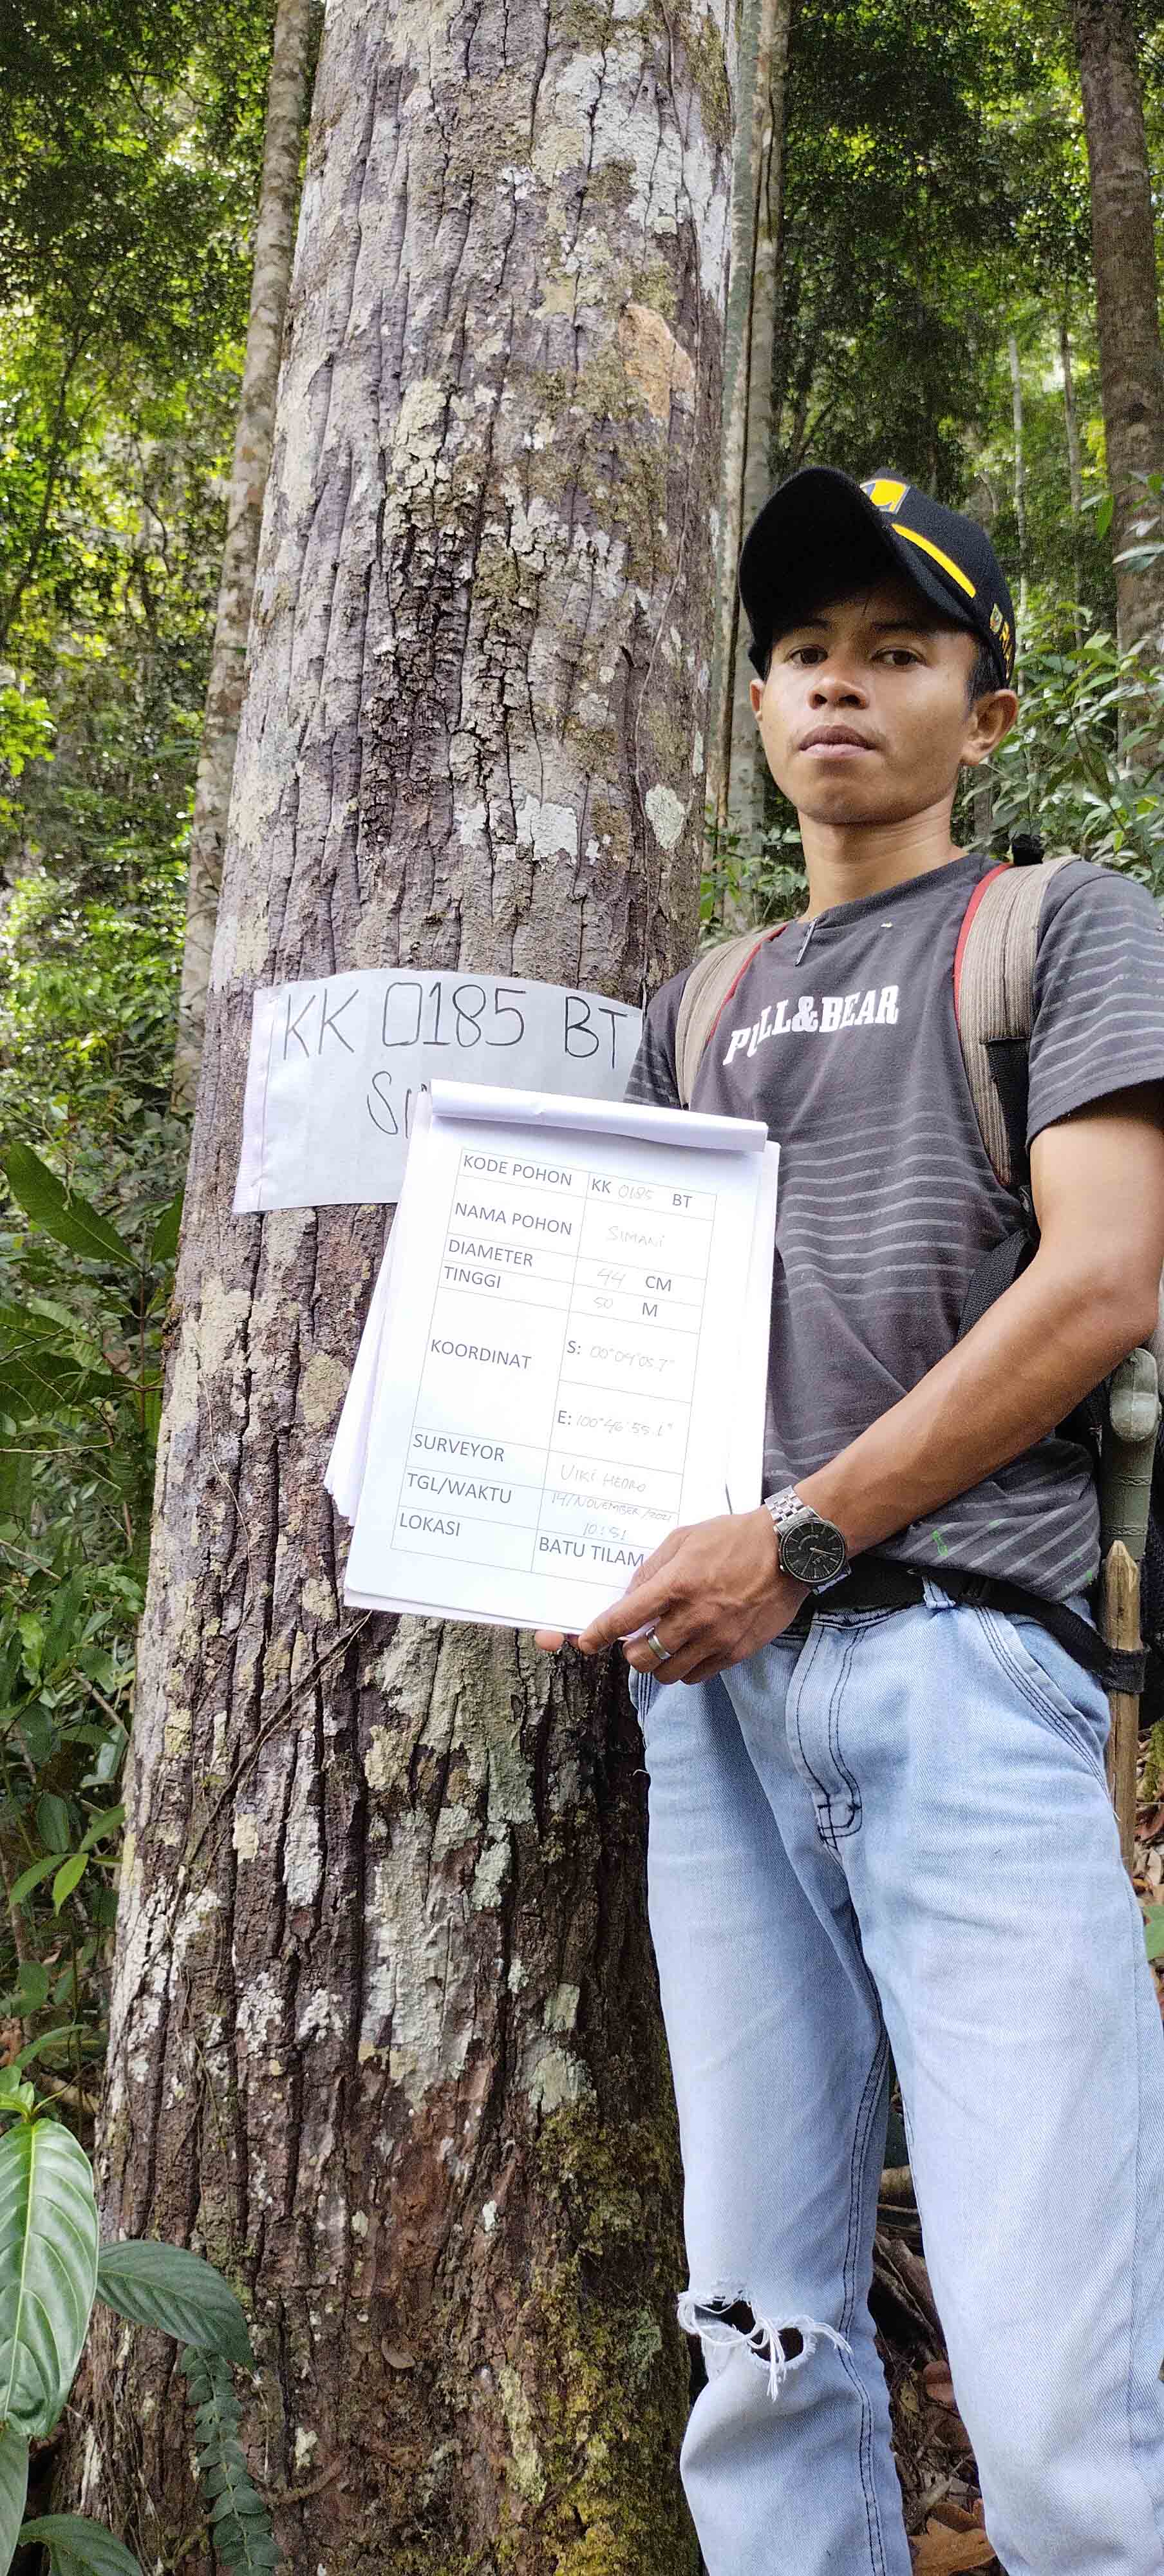 KK 0185 BT
PULL&BEAR
KODE POHON KK 0185 BT
NAMA POHON SIMANI
DIAMETER 44 CM
TINGGI 50 M
KOORDINAT
S: 00°04'05.7"
E: 100°46'55.1"
SURVEYOR VIKI HENRO
TGL/WAKTU 14/NOVEMBER/2021
10:51
LOKASI BATU TILAM